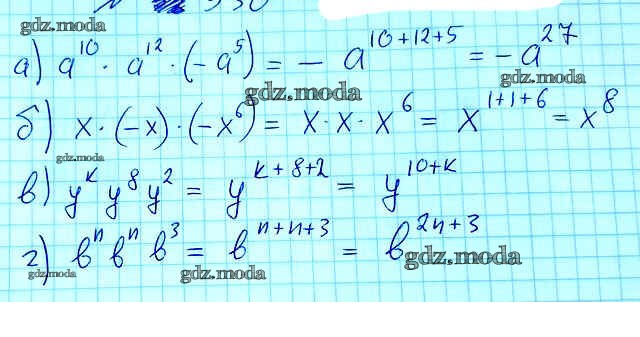 gdz.moda
а) a¹⁰ · a¹² · (-a⁵) = - a¹⁰⁺¹²⁺⁵ = - a²⁷
gdz.moda
gdz.moda
б) x · (-x) · (-x⁶) = x · x · x⁶ = x¹⁺¹⁺⁶ = x⁸
gdz.moda
в) yᵏ y⁸ y² = yᵏ⁺⁸⁺² = y¹⁰⁺ᵏ
г) bⁿ bⁿ b³ = bⁿ⁺ⁿ⁺³ = b²ⁿ⁺³
gdz.moda
gdz.moda
gdz.moda